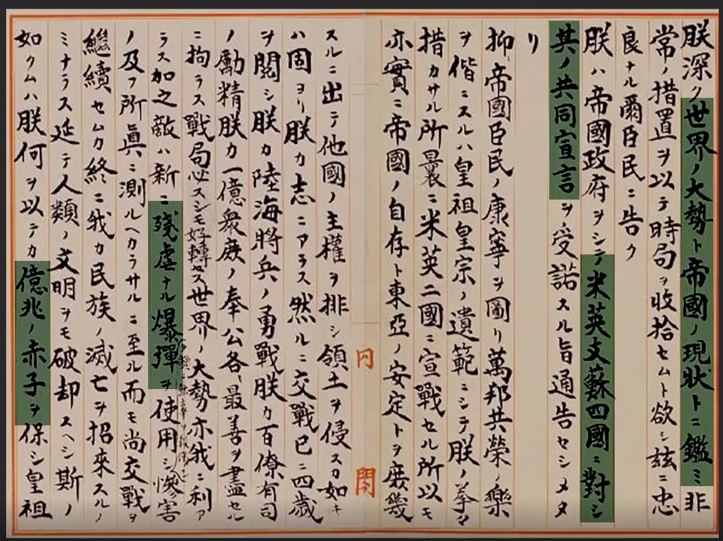 朕深ク世界ノ大勢ト帝國ノ現状トニ鑑ミ非
常ノ措置ヲ以テ時局ヲ收拾セムト欲シ茲ニ忠
良ナル爾臣民ニ告ク
朕ハ帝國政府ヲシテ米英支蘇四國ニ對シ
其ノ共同宣言ヲ受諾スル旨通告セシメタ
リ
抑〻帝國臣民ノ康寧ヲ圖リ萬邦共榮ノ樂
ヲ偕ニスルハ皇祖皇宗ノ遺範ニシテ朕ノ拳〻
措カサル所曩ニ米英二國ニ宣戰セル所以モ
亦實ニ帝國ノ自存ト東亞ノ安定トヲ庶幾
スルニ出テ他國ノ主權ヲ排シ領土ヲ侵スカ如キ
ハ固ヨリ朕カ志ニアラス然ルニ交戰已ニ四歳
ヲ閲シ朕カ陸海將兵ノ勇戰朕カ百僚有司
ノ勵精朕カ一億衆庶ノ奉公各〻最善ヲ盡セル
ニ拘ラス戰局必スシモ好轉セス世界ノ大勢亦我ニ利ア
ラス加之敵ハ新ニ殘虐ナル爆彈ヲ使用シ慘害
ノ及フ所眞ニ測ルヘカラサルニ至ル而モ尚交戰ヲ
繼續セムカ終ニ我カ民族ノ滅亡ヲ招來スルノ
ミナラス延テ人類ノ文明ヲモ破却スヘシ斯ノ
如クムハ朕何ヲ以テカ億兆ノ赤子ヲ保シ皇祖